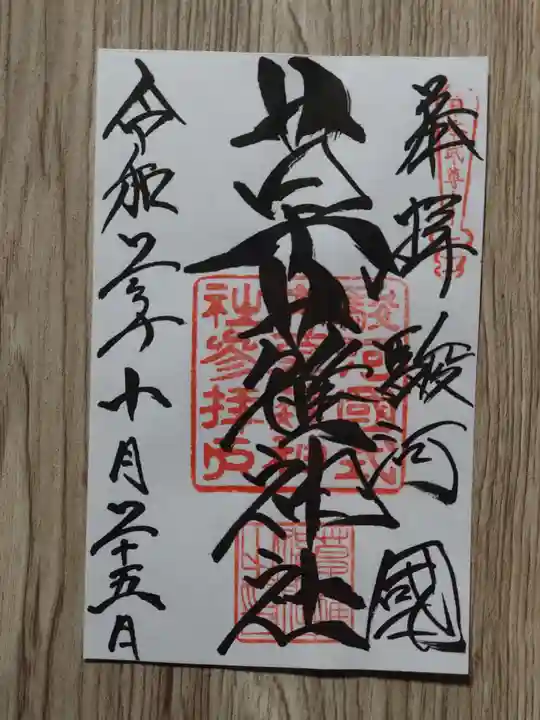 奉拝 駿河國
草薙神社
令和二年十月二十五日
駿河國式
内草薙神
社參拝印